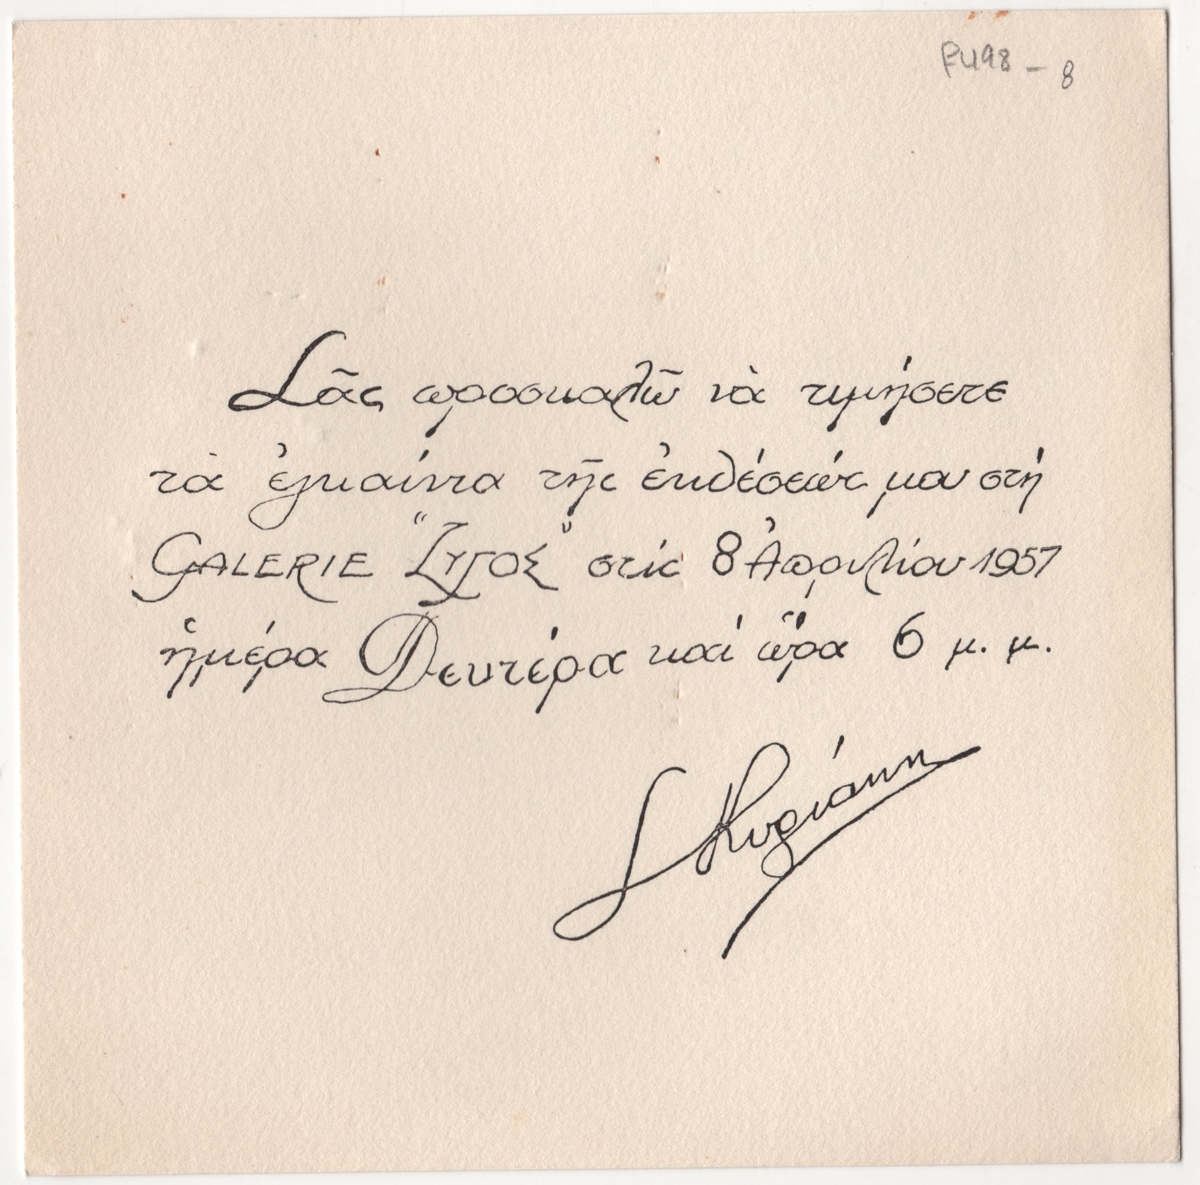 FU98-8
Σᾶς προσκαλῶ νὰ τιμήσετε
τὰ ἐγκαίνια τῆς ἐκθέσεώς μου στή
GALERIE "ΖΥΓΟΣ" στίς 8 Ἀπριλίου 1957
ἡμέρα Δευτέρα καί ὥρα 6 μ. μ.
Σ Κυριάκη